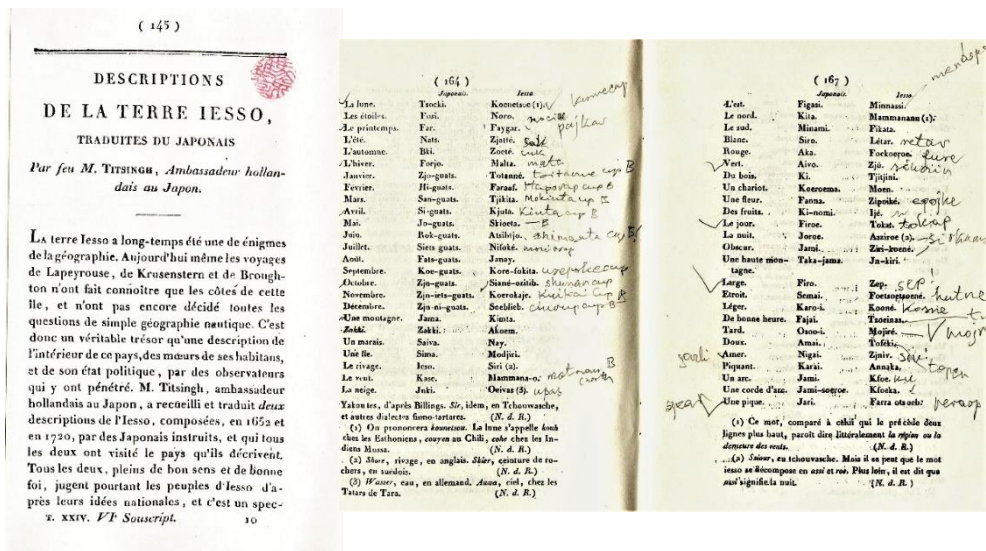 ( 145 )
DESCRIPTIONS
DE LA TERRE IESSO,
TRADUITES DU JAPONAIS
Par feu M. TITSINGH, Ambassadeur hollan-
dais au Japon.
LA terre Iesso a long-temps été une de énigmes
de la géographie. Aujourd'hui même les voyages
de Lapeyrouse, de Krusenstern et de Brough-
ton n'ont fait connoître que les côtes de cette
île, et n'ont pas encore décidé toutes les
questions de simple géographie nautique. C'est
donc un véritable trésor qu'une description de
l'intérieur de ce pays, des mœurs de ses habitans,
et de son état politique, par des observateurs
qui y ont pénétré. M. Titsingh, ambassadeur
hollandais au Japon, a recueilli et traduit deux
descriptions de l'Iesso, composées, en 1652 et
en 1720, par des Japonais instruits, et qui tous
les deux ont visité le pays qu'ils décrivent.
Tous les deux, pleins de bon sens et de bonne
foi, jugent pourtant les peuples d'Iesso d'a-
près leurs idées nationales, et c'est un spec-
T. XXIV. VIe Souscript. 10
( 164 )
Japonais. Iesso.
La lune. Tsocki. Kouetsou (1). kunnecup
Les étoiles. Fosi. Noro. nociw
Le printemps. Far. Faygar. pajkar
L'été. Nats. Zjatté. sak
L'automne. Bki. Zoeté. cuk
L'hiver. Forjo. Malta. mata
Janvier. Zjo-guats. Totanné. B
Février. Hi-guats. Faraaf. Haporap cup B
Mars. San-guats. Tjikita. Mokiuta cup B
Avril. Si-guats. Kjuta. Kiuta cup B
Mai. Jo-guats. Skioeta. —B
Juin. Rok-guats. shimauta cup
Juillet. Siets guats. Nifoké.
Août. Fats-guats. Janay.
Septembre. Koe-guats. Kore-fokita. urepokecup
Octobre. Zjn-guats. Siané-ozitib. shunancup
Novembre. Zjn-iets-guats. Koerokaje. Kuikai Cup B
Décembre. Zjn-ni-guats. Soeblieb. B
Une montagne. Jama. Kimta.
Zakki. Zakki. Akoem.
Un marais. Saiva. Nay.
Une île. Sima. Modjiri.
Le rivage. Ieso. Siri (2).
Le vent. Kase. Mammana-o. matnau B (north
La neige. Jnki. Oeivas (3). upas
Yakoutes, d'après Billings. Sir, idem, en Tchouwasche,
et autres dialectes finno-tartares. (N. d. R.)
(1) On prononcera kounetsou. La lune s'appelle kouh
chez les Esthoniens, couyen au Chili, cohe chez les In-
diens Mossa. (N. d. R.)
(2) Shore, rivage, en anglais. Skier, ceinture de ro-
chers, en suédois. (N. d. R.)
(3) Wasser, eau, en allemand. Awna, ciel, chez les
Tatars de Tara. (N. d. R.)
( 167 )
Japonais. Iesso.
L'est. Figasi. Minnassi.
Le nord. Kita. Mammanann (1).
Le sud. Minami. Fikata.
Blanc. Siro. Létar. retar
Rouge. Aka. Fockoeroe. fure
Vert. Aivo. Zjò.
Du bois. Ki. Tjitjini.
Un chariot. Koeroema. Moen.
Une fleur. Fanna. Zipoiké. epojke
Des fruits. Ki-nomi. Ijé.
Le jour. Firoe. Tokat. tokap
La nuit. Joroe. Asziroe (2).
Obscur. Jami. Ziri-koené.
Une haute mon- Taka-jama. Jn-kiri.
tagne.
Large. Piro. Zep. sep!
Etroit. Semai. Foetsoptsoené. hutne
Léger. Karo-i. Kooné. kosne
De bonne heure. Fajai. Tzoeinas.
Tard. Osoo-i. Mojiré.
Doux. Amai. Tofeki. topen
Amer. Nigai. Zjniv. siw
Piquant. Karai. Annaka.
Un arc. Jami. Kfoe. ku
Une corde d'arc. Jami-soeroe. Kfoeka.
spear Une pique. Jari. Farra otaoeb. peraop
(1) Ce mot, comparé à celui qui le précède deux
lignes plus haut, paroît dire littéralement la région ou la
demeure des vents. (N. d. R.)
(2) Ssiour, en tchouvasche. Mais il se peut que le mot
iesso se décompose en assi et roé. Plus loin, il est dit que
assi signifie la nuit. (N. d. R.)